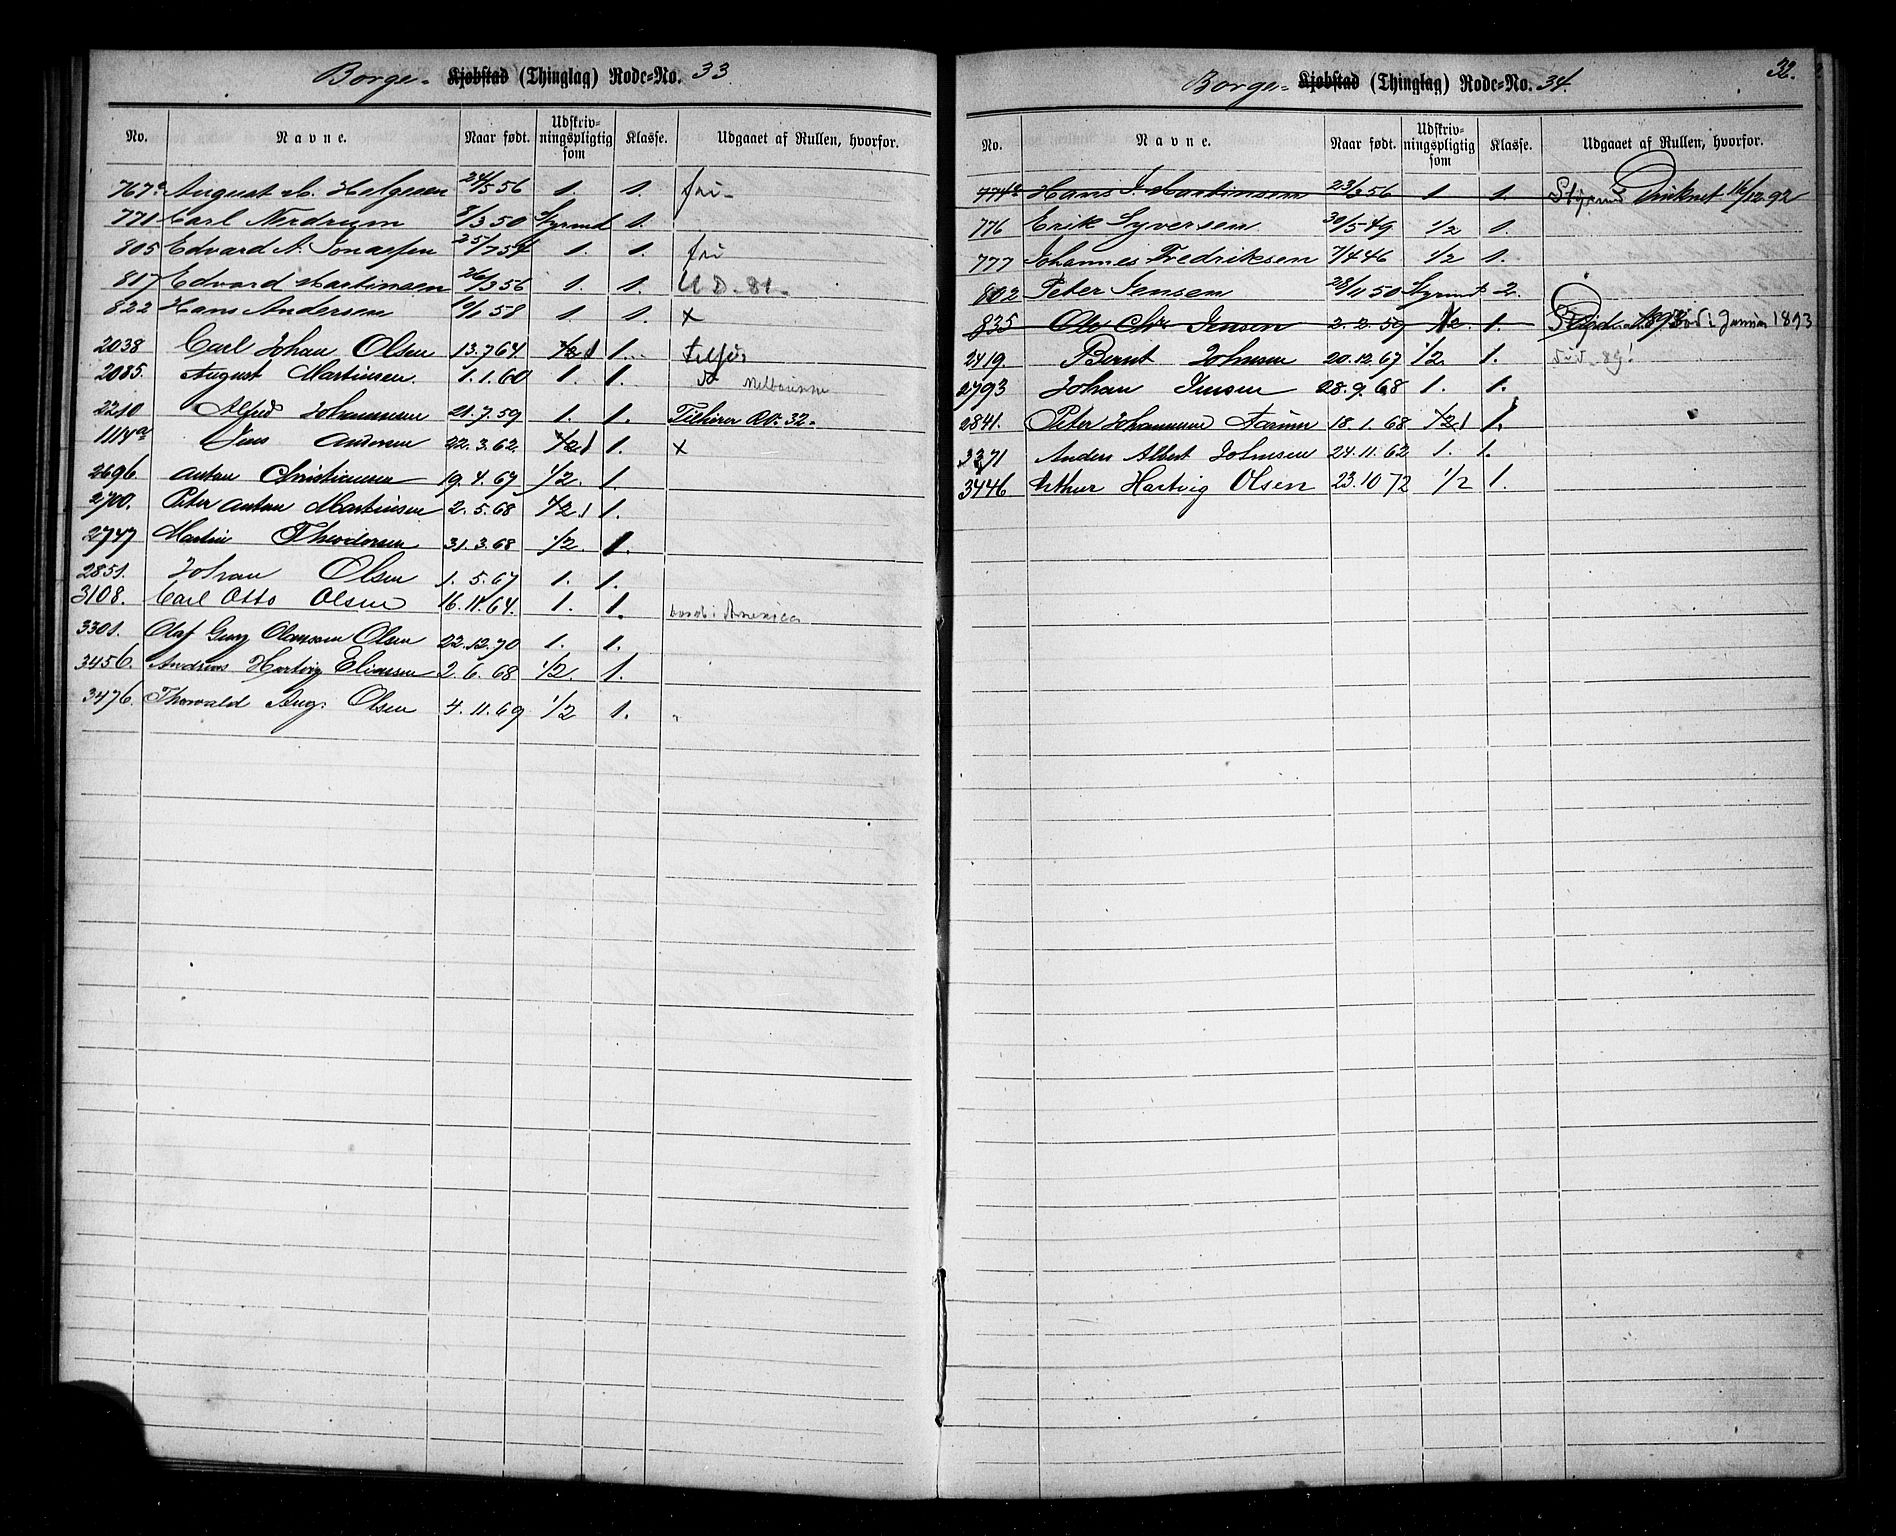 Borge. Kjøbstad (Thinglag) Rode-No. 33
No. Navne. Naar født. Udskrivningspligtig som Klasse. Udgaaet af Rullen, hvorfor.
767a August M. Helgesen 24/5 56 1. 1. fri
771 Carl Nordrum 8/3 50 Styrmd 1.
805 Edvard A. Jonassen 25/7 54 1. 1. fri
817 Edvard Martinsen 26/3 56 1. 1. U D. 81.
822 Hans Andersen 10/1 58 1. 1. x
2038 Carl Johan Olsen 13.7.64 1/2 1 1.
2085. August Martinsen. 1.1.60 1. 1. Melbourne
2210 Alfred Johannesen 21.7.59 1. 1. Tilhører RN: 32.
1114a Jens Andersen 22.3.62. 1/2 1 1. x
2696 Anton Christiansen 19.4.67 1/2. 1.
2700. Peter Anton Martinsen 2.5.68 1/2 1 1.
2747 Martin Theodorsen 31.3.68 1/2. 1.
2851. Johan Olsen 1.5.67 1. 1.
3108. Carl Otto Olsen 16.11.64. 1. 1. bosat i Amerika
3301. Olaf Georg Clausen Olsen 22.12.70 1. 1.
3456. Andreas Hartvig Eliassen 2.6.68 1/2. 1.
3476. Thorvald Aug. Olsen 4.11.69 1/2 1.
32.
Borge. Kjøbstad (Thinglag) Rode-No. 34.
No. Navne. Naar født. Udskrivningspligtig som Klasse. Udgaaet af Rullen, hvorfor.
774a Hans J. Martinsen 23/3 56 1 1. Styrmd Druknet 16/12 92
776 Erik Syversen 30/5 49 1/2 1.
777 Johannes Fredriksen 7/4 46 1/2 1.
802 Peter Jensen 28/11 50 Styrmd 2.
835 Ole Chr. Jensen 2.2.59 1/2. 1. Død i Januar 1893
2419. Bernt Johnsen 20.12.67 1/2 1.
2793 Johan Jensen 28.9.68 1. 1.
2841. Peter Johannesen Aarum 18.1.68 1/2 1 1.
3371 Anders Albert Johnsen 24.11.62 1. 1.
3446 Arthur Hartvig Olsen 23.10 72 1/2 1.